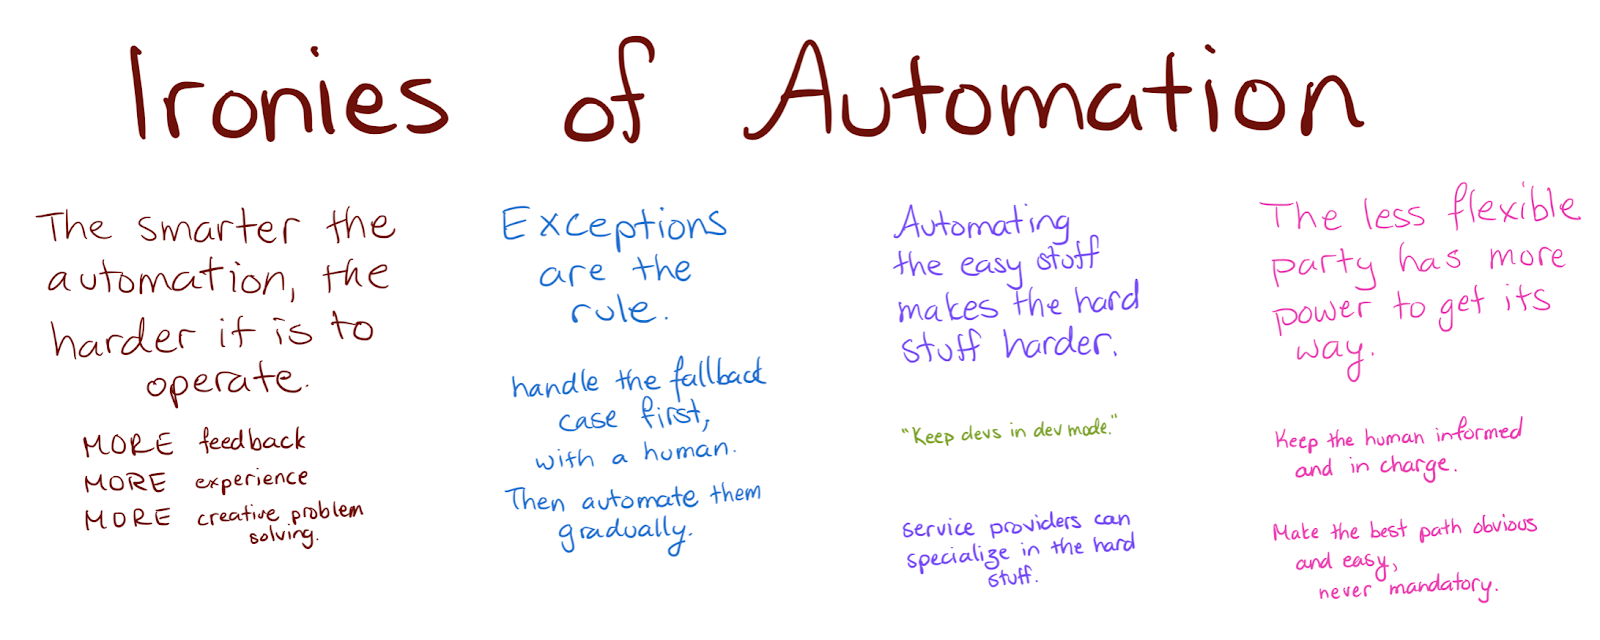 Ironies of Automation
The smarter the
automation, the
harder it is to
operate.
MORE feedback
MORE experience
MORE creative problem
solving.
Exceptions
are the
rule.
handle the fallback
case first,
with a human.
Then automate them
gradually.
Automating
the easy stuff
makes the hard
stuff harder.
"Keep devs in dev mode."
service providers can
specialize in the hard
stuff.
The less flexible
party has more
power to get its
way.
Keep the human informed
and in charge.
Make the best path obvious
and easy,
never mandatory.